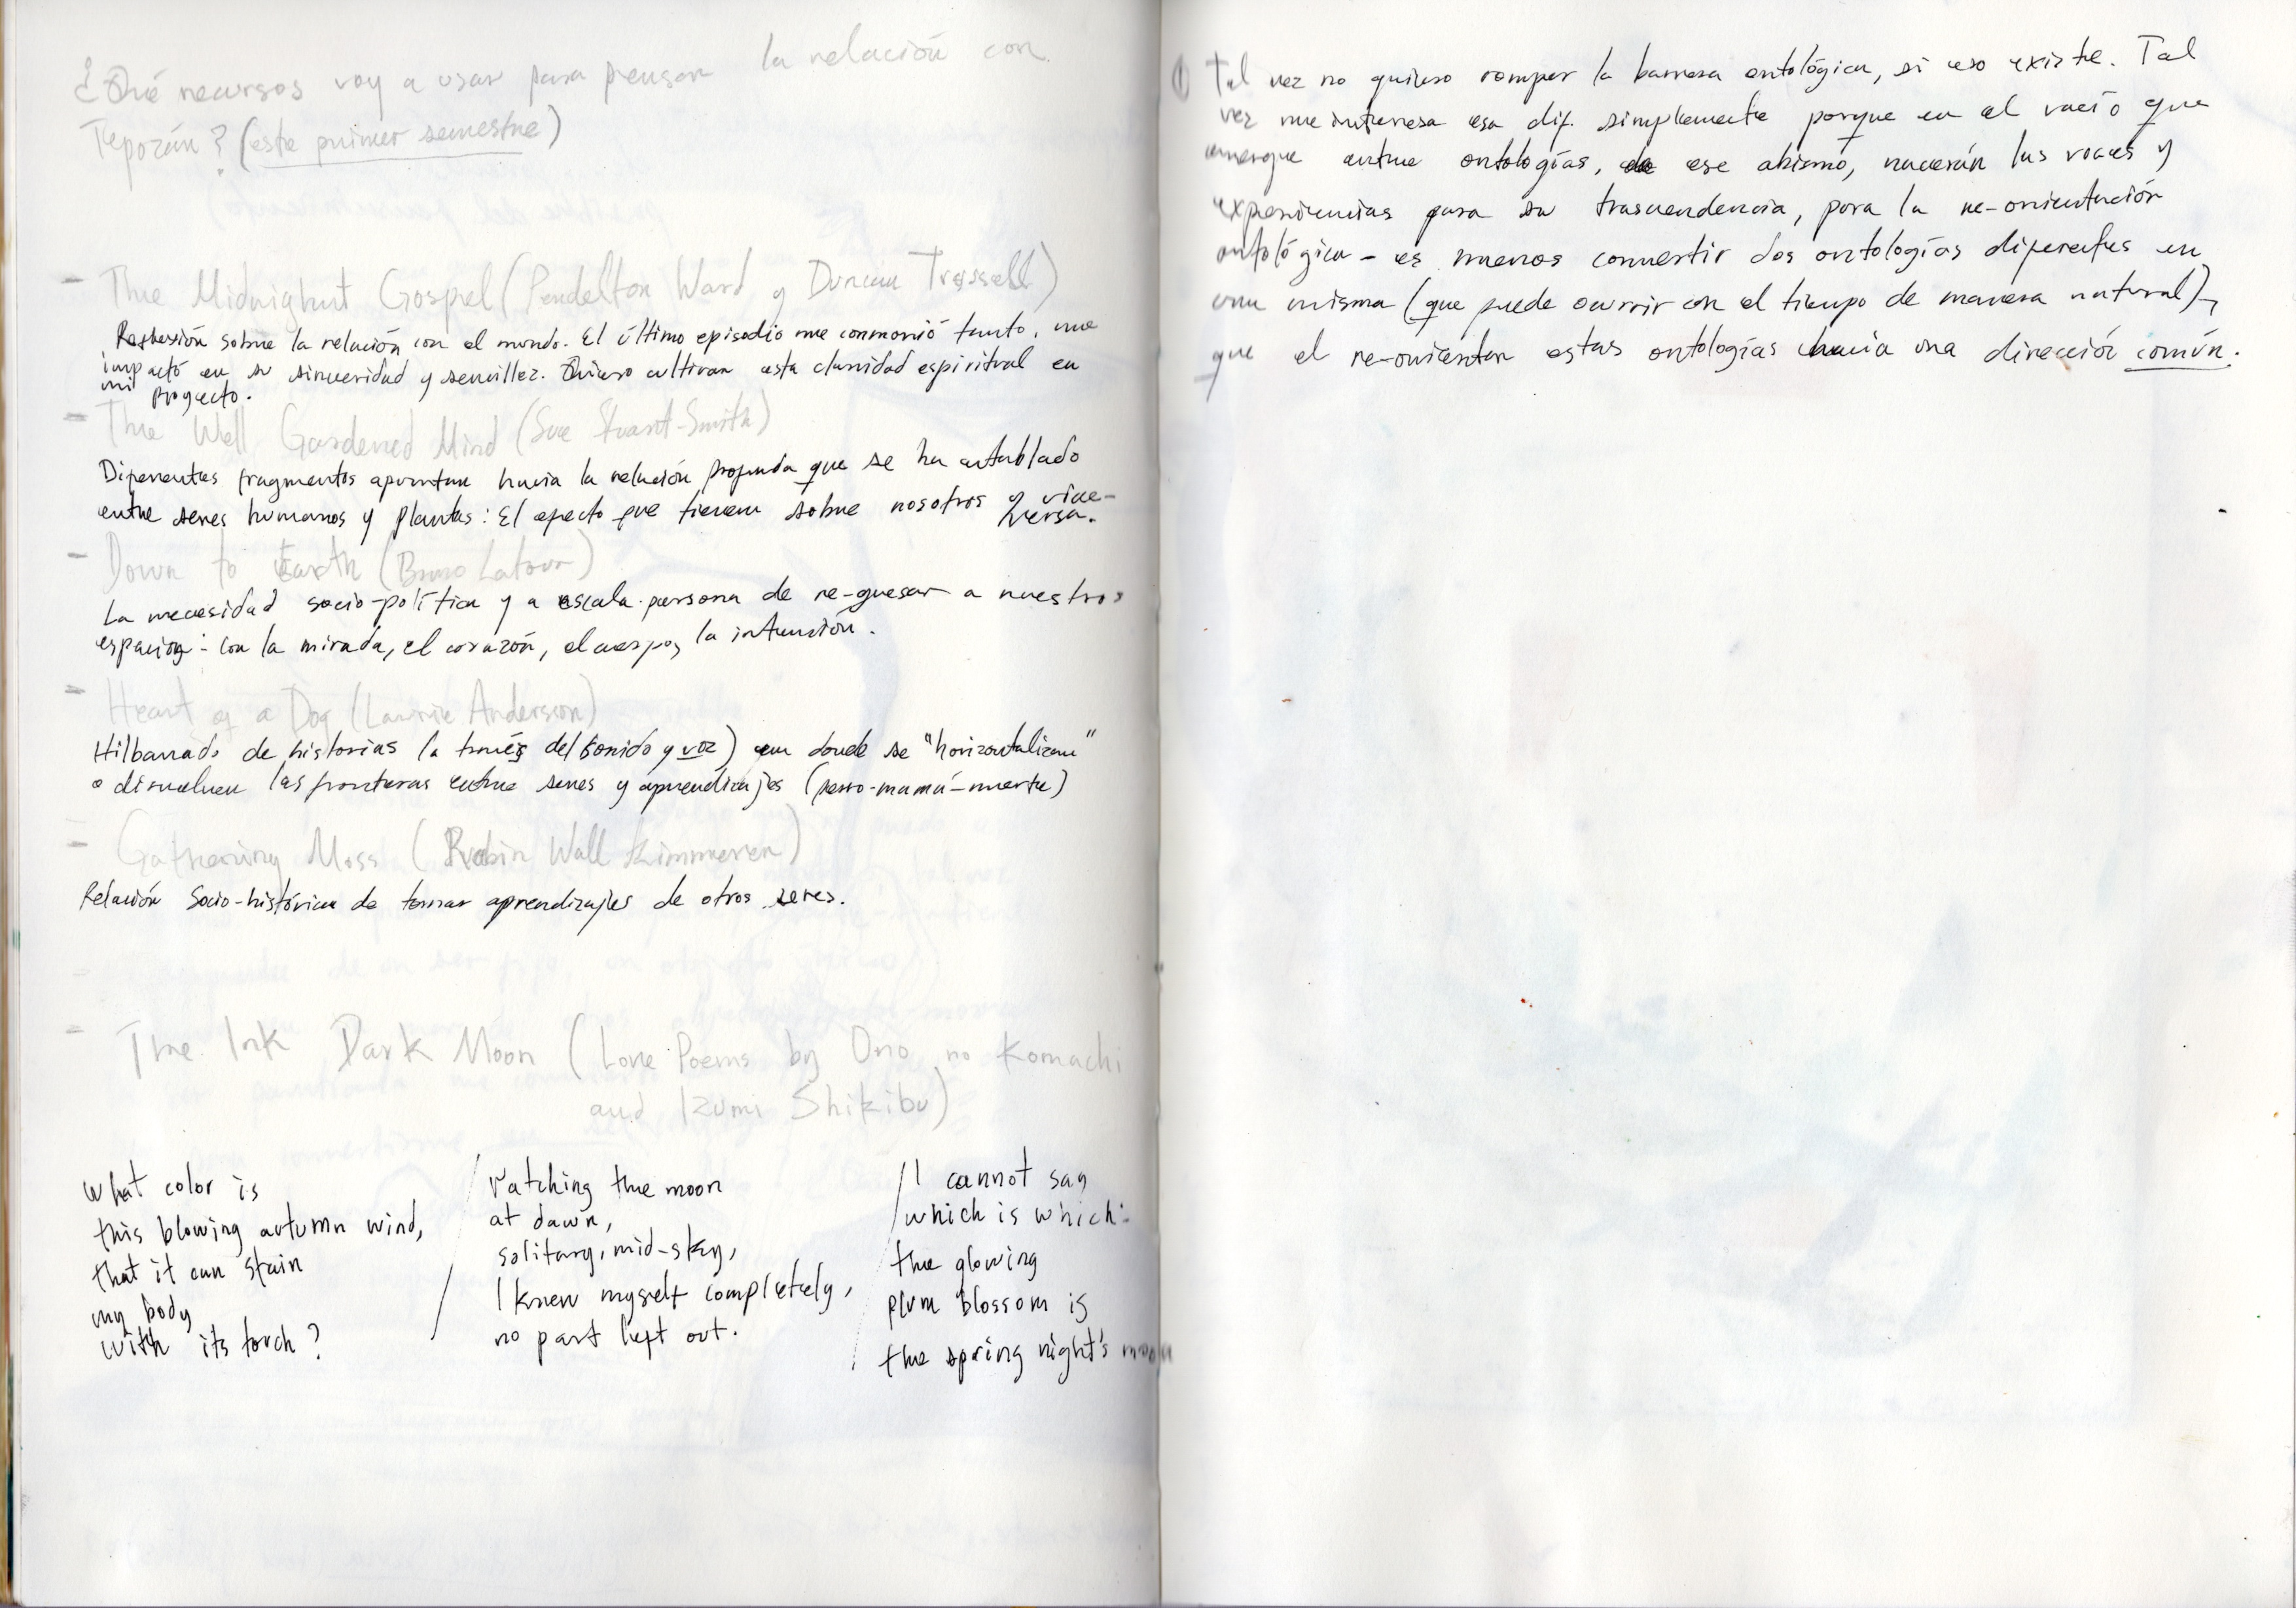 ¿Qué recursos voy a usar para pensar la relación con
Tepozán? (este primer semestre)
- The Midnight Gospel (Pendelton Ward y Duncan Trussell)
Reflexión sobre la relación con el mundo. El último episodio me conmovió tanto, me
impactó en su sinceridad y sencillez. Quiero cultivar esta claridad espiritual en
mi proyecto.
- The Well Gardened Mind (Sue Stuart-Smith)
Diferentes fragmentos apuntan hacia la relación profunda que se ha entablado
entre seres humanos y plantas: El efecto que tienen sobre nosotros y vice-
versa.
- Down to Earth (Bruno Latour)
La necesidad socio-política y a escala persona de re-gresar a nuestros
espacios: con la mirada, el corazón, el cuerpo, la intuición.
- Heart of a Dog (Laurie Anderson)
Hilbanado de historias (a través del sonido y voz) en donde se "horizontalizan"
o disuelven las fronteras entre seres y aprendizajes (perro-mamá-muerte)
- Gathering Moss (Robin Wall Kimmerer)
Relación Socio-histórica de tomar aprendizajes de otros seres.
- The Ink Dark Moon (Love Poems by Ono no Komachi
and Izumi Shikibu)
What color is
this blowing autumn wind,
that it can stain
my body
with its touch?
Watching the moon
at dawn,
solitary, mid-sky,
I knew myself completely,
no part left out.
I cannot say
which is which:
the glowing
plum blossom is
the spring night's moon
Tal vez no quiero romper la barrera ontológica, si eso existe. Tal
vez me interesa esa dif. simplemente porque en el vacío que
emerge entre ontologías, ese abismo, nacerán las voces y
experiencias para su trascendencia, para la re-orientación
ontológica - es menos convertir dos ontologías diferentes en
una misma (que puede ocurrir con el tiempo de manera natural),
que el re-orientar estas ontologías hacia una dirección común.